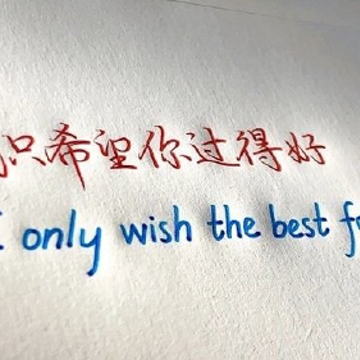 只希望你过得好
I only wish the best